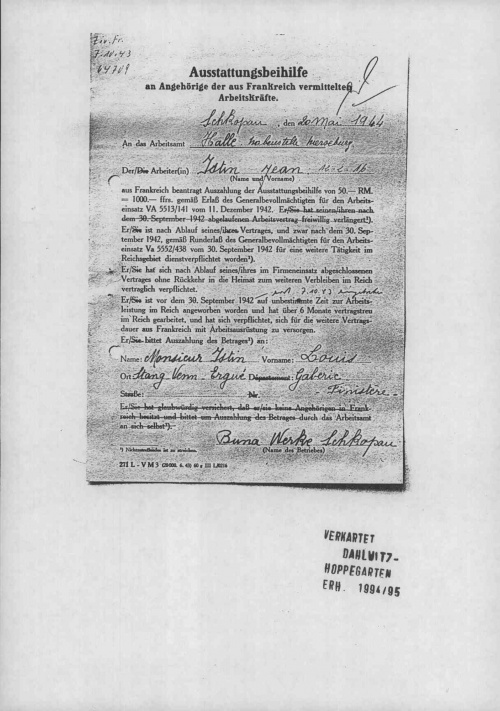 Ziv. Fr.
7.10.43
64709
Ausstattungsbeihilfe
an Angehörige der aus Frankreich vermittelten
Arbeitskräfte.
Schkopau, den 20 Mai 1944
An das Arbeitsamt Halle Nebenstelle Merseburg
Der/Die Arbeiter(in) Istin Jean
(Name und Vorname)
aus Frankreich beantragt Auszahlung der Ausstattungsbeihilfe von 50.— RM.
= 1000.— ffrs. gemäß Erlaß des Generalbevollmächtigten für den Arbeits-
einsatz VA 5513/141 vom 11. Dezember 1942. Er/Sie hat seinen/ihren nach
dem 30. September 1942 abgelaufenen Arbeitsvertrag freiwillig verlängert¹).
Er/Sie ist nach Ablauf seines/ihres Vertrages, und zwar nach dem 30. Sep-
tember 1942, gemäß Runderlaß des Generalbevollmächtigten für den Arbeits-
einsatz VA 5552/438 vom 30. September 1942 für eine weitere Tätigkeit im
Reichsgebiet dienstverpflichtet worden¹).
Er/Sie hat sich nach Ablauf seines/ihres im Firmeneinsatz abgeschlossenen
Vertrages ohne Rückkehr in die Heimat zum weiteren Verbleiben im Reich
vertraglich verpflichtet.
7.10.43
Er/Sie ist vor dem 30. September 1942 auf unbestimmte Zeit zur Arbeits-
leistung im Reich angeworben worden und hat über 6 Monate vertragstreu
im Reich gearbeitet, und hat sich verpflichtet, sich für die weitere Vertrags-
dauer aus Frankreich mit Arbeitsausrüstung zu versorgen.
Er/Sie bittet Auszahlung des Betrages¹) an:
Name: Monsieur Istin Vorname: Louis
Ort Stang Venn - Ergué Département: Gaberic
Straße: Nr. - Finistère -
Er/Sie hat glaubwürdig versichert, daß er/sie keine Angehörigen in Frank-
reich besitzt und bittet um Auszahlung des Betrages durch das Arbeitsamt
an sich selbst¹).
Buna Werke Schkopau
¹) Nichtzutreffendes ist zu streichen. (Name des Betriebes)
271 L - VM 3
VERKARTET
DAHLWITZ-
HOPPEGARTEN
ERH. 1994/95